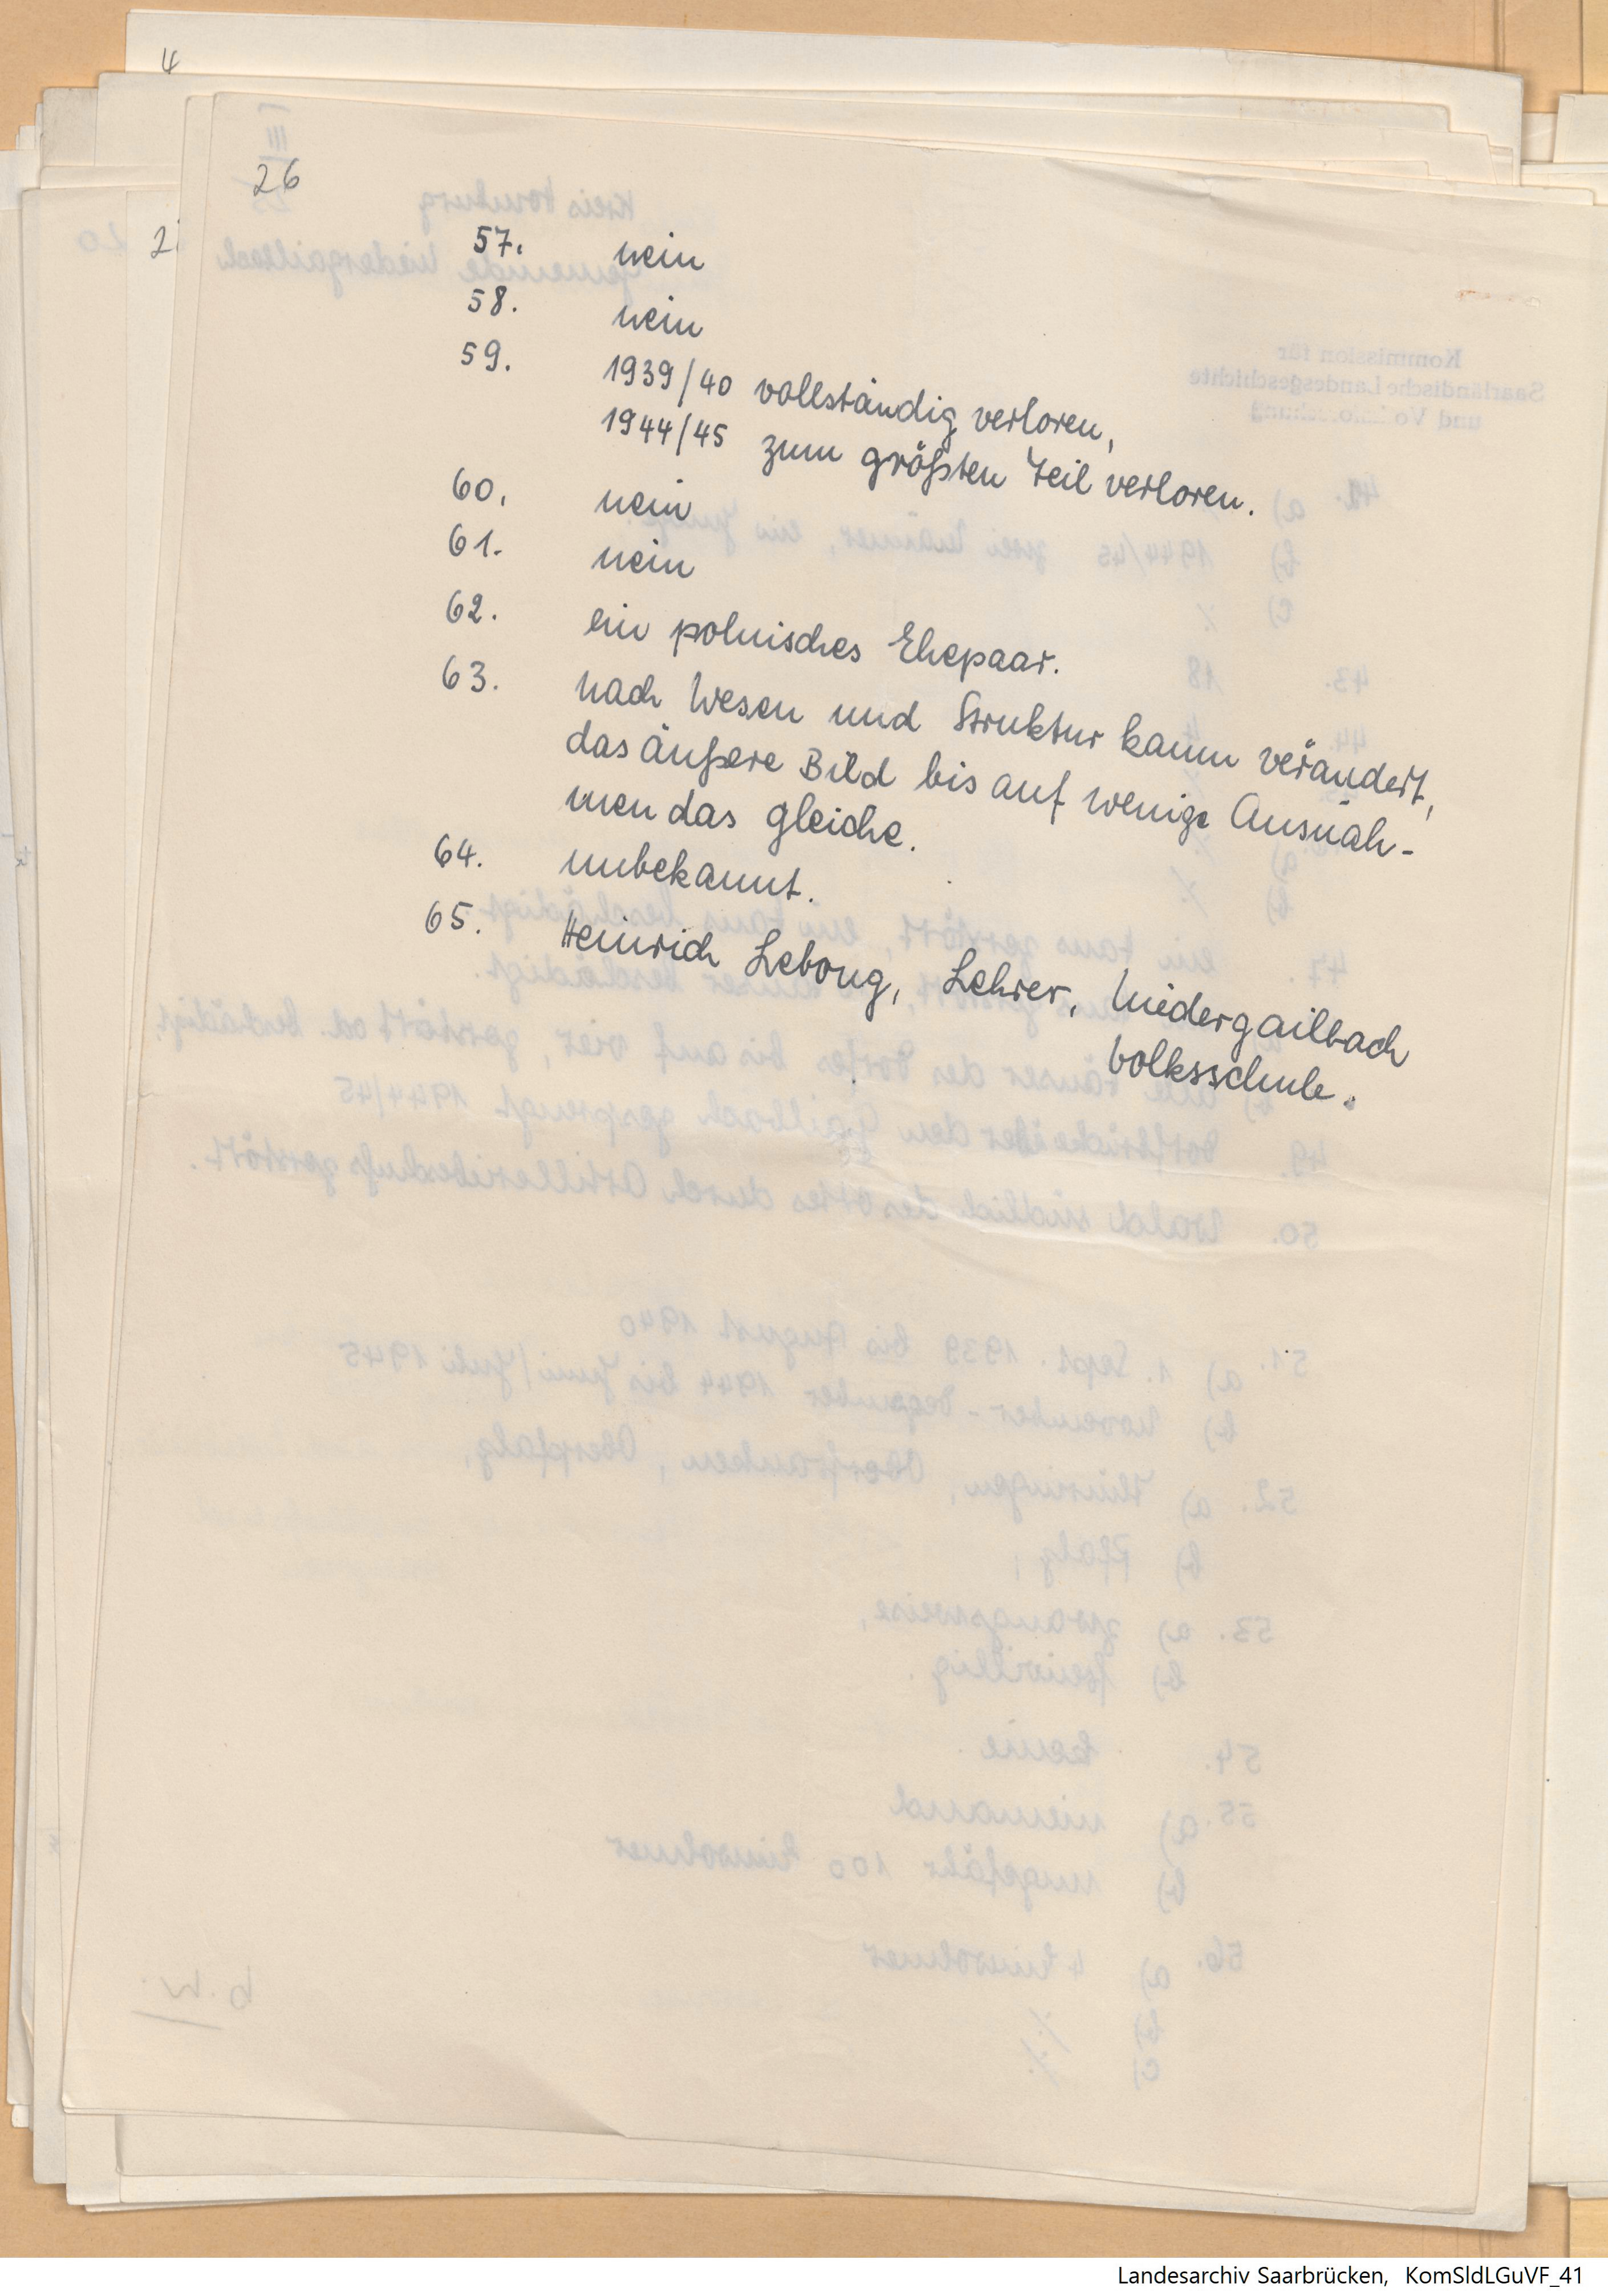 4
26
2
57. nein
58. nein
59. 1939/40 vollständig verloren,
1944/45 zum größten Teil verloren.
60. nein
61. nein
62. ein polnisches Ehepaar.
63. nach Wesen und Struktur kaum verändert,
das äußere Bild bis auf wenige Ausnah-
men das gleiche.
64. unbekannt.
65. Heinrich Lebong, Lehrer, Niedergailbach
Volksschule.
Landesarchiv Saarbrücken, KomSldLGuVF_41